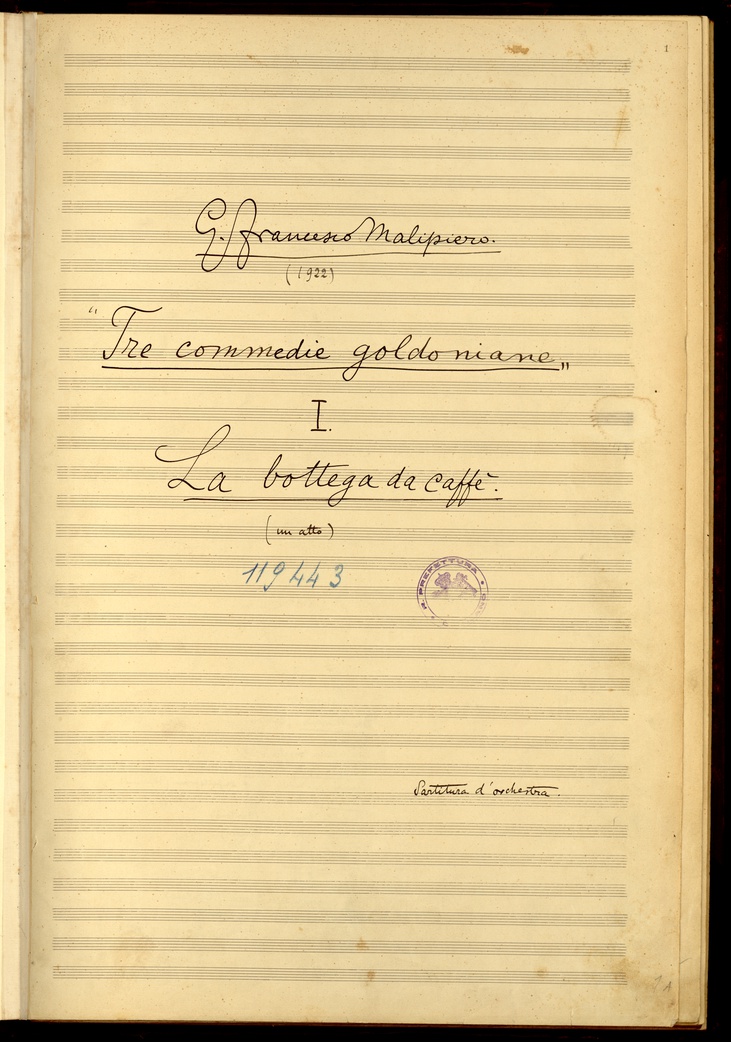 1
G. Francesco Malipiero.
(1922)
"Tre commedie goldoniane„
I.
La bottega da caffè.
(un atto)
119443
R. PREFETTURA
Partitura d'orchestra.